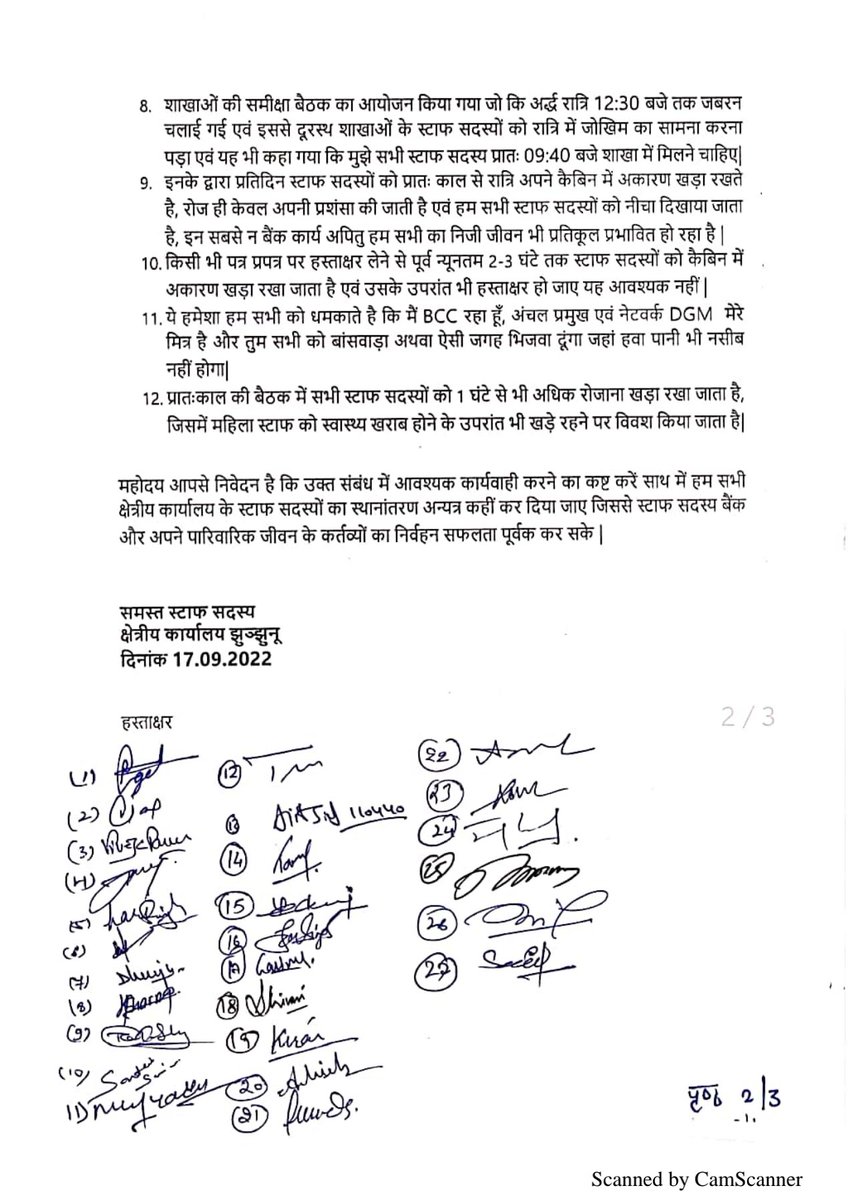 8. शाखाओं की समीक्षा बैठक का आयोजन किया गया जो कि अर्द्ध रात्रि 12:30 बजे तक जबरन
चलाई गई एवं इससे दूरस्थ शाखाओं के स्टाफ सदस्यों को रात्रि में जोखिम का सामना करना
पड़ा एवं यह भी कहा गया कि मुझे सभी स्टाफ सदस्य प्रातः 09:40 बजे शाखा में मिलने चाहिए|
9. इनके द्वारा प्रतिदिन स्टाफ सदस्यों को प्रातः काल से रात्रि अपने कैबिन में अकारण खड़ा रखते
है, रोज ही केवल अपनी प्रशंसा की जाती है एवं हम सभी स्टाफ सदस्यों को नीचा दिखाया जाता
है, इन सबसे न बैंक कार्य अपितु हम सभी का निजी जीवन भी प्रतिकूल प्रभावित हो रहा है |
10. किसी भी पत्र प्रपत्र पर हस्ताक्षर लेने से पूर्व न्यूनतम 2-3 घंटे तक स्टाफ सदस्यों को कैबिन में
अकारण खड़ा रखा जाता है एवं उसके उपरांत भी हस्ताक्षर हो जाए यह आवश्यक नहीं |
11. ये हमेशा हम सभी को धमकाते है कि मैं BCC रहा हूँ, अंचल प्रमुख एवं नेटवर्क DGM मेरे
मित्र है और तुम सभी को बांसवाड़ा अथवा ऐसी जगह भिजवा दूंगा जहां हवा पानी भी नसीब
नहीं होगा|
12. प्रातःकाल की बैठक में सभी स्टाफ सदस्यों को 1 घंटे से भी अधिक रोजाना खड़ा रखा जाता है,
जिसमें महिला स्टाफ को स्वास्थ्य खराब होने के उपरांत भी खड़े रहने पर विवश किया जाता है|
महोदय आपसे निवेदन है कि उक्त संबंध में आवश्यक कार्यवाही करने का कष्ट करें साथ में हम सभी
क्षेत्रीय कार्यालय के स्टाफ सदस्यों का स्थानांतरण अन्यत्र कहीं कर दिया जाए जिससे स्टाफ सदस्य बैंक
और अपने पारिवारिक जीवन के कर्तव्यों का निर्वहन सफलता पूर्वक कर सके |
समस्त स्टाफ सदस्य
क्षेत्रीय कार्यालय झुञ्झुनू
दिनांक 17.09.2022
हस्ताक्षर
2/3
(1)
(2)
(3)
(4)
(5)
(6)
(7)
(8)
(9)
(10)
11)
12
13 110440
14
15
16
17
18
19 Kiran
20
21
22
23
24
25
26
27
पृष्ठ 2/3
Scanned by CamScanner